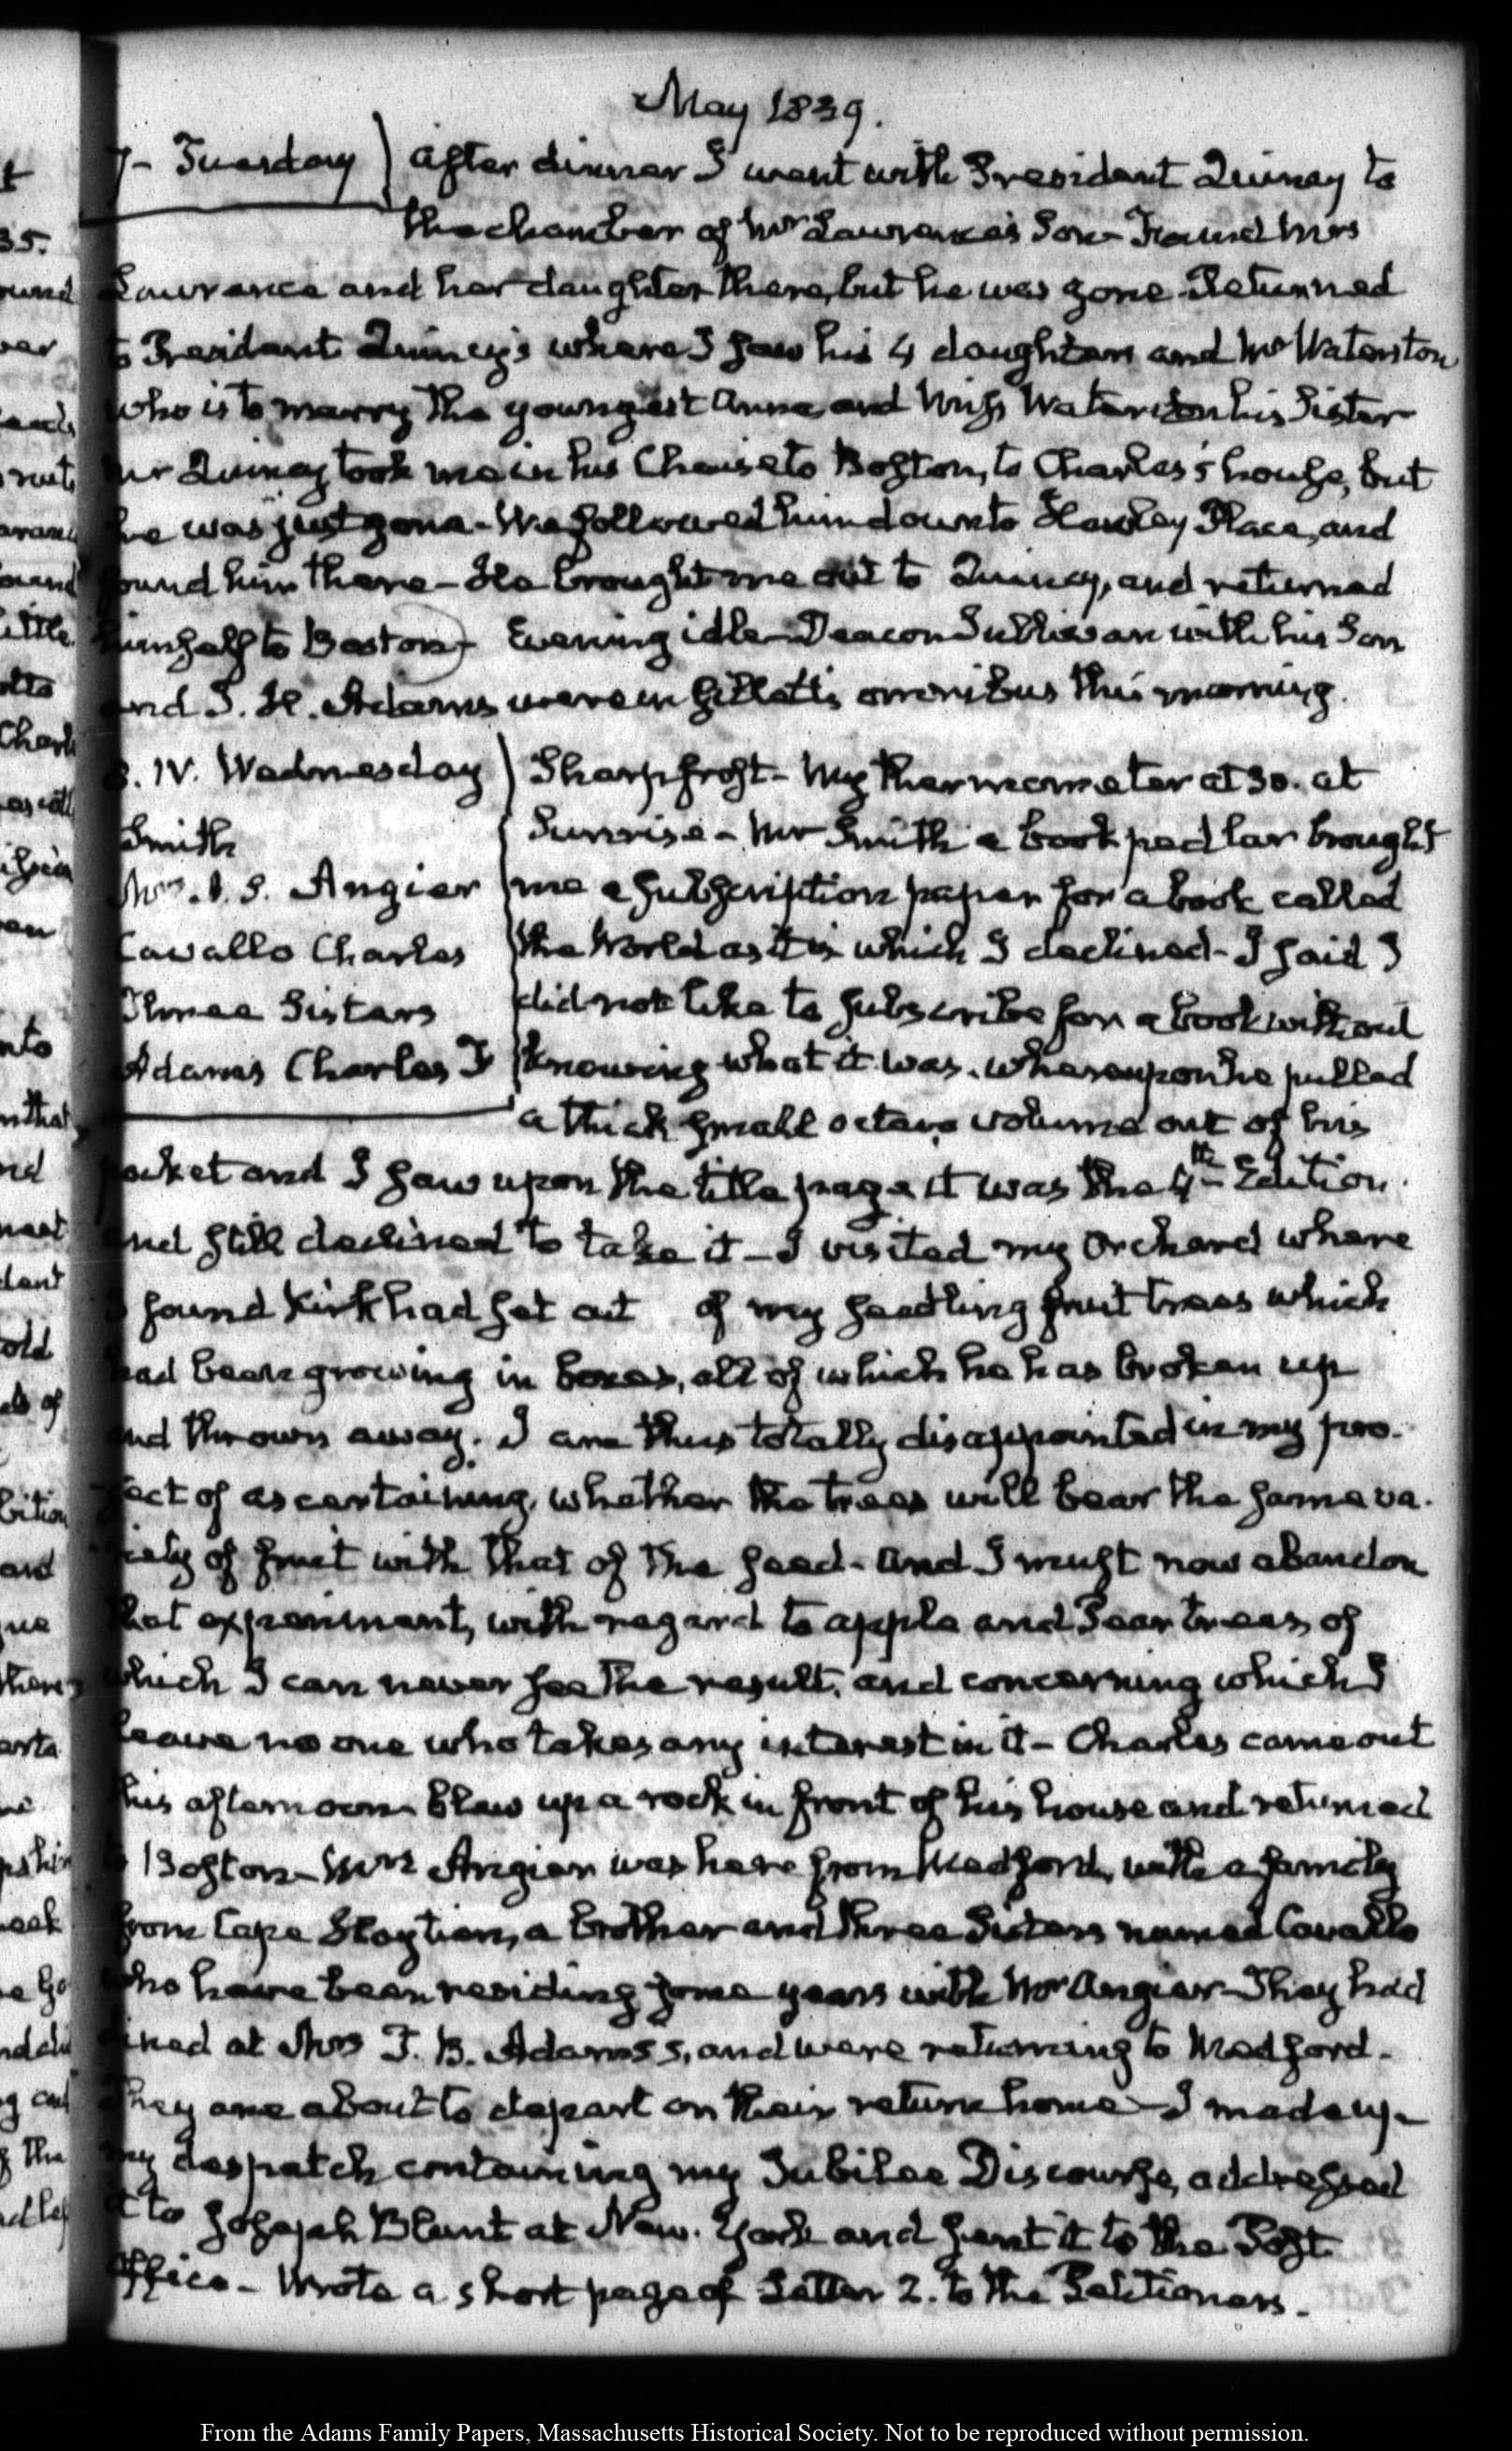 May 1839.
7- Tuesday
After dinner I went with President Quincy to
the chamber of Mr Lawrence's Son- Found Mrs
Lawrence and her daughter there, but he was gone- Returned
to President Quincy's where I saw his 4 daughters and Mr Waterston
who is to marry the youngest Anna and Miss Waterston his Sister
Mr Quincy took me in his Chaise to Boston, to Charles's house, but
he was just gone- We followed him down to Hawley Place, and
found him there- He brought me out to Quincy, and returned
himself to Boston- Evening idle- Deacon Sullivan with his Son
and I. H. Adams were in Gillett's omnibus this morning.
8. IV. Wednesday
Smith
Mrs. Angier
Cavallo Charles
Three Sisters
Adams Charles F
Sharp frost- My thermometer at 30. at
Sunrise- Mr Smith a book pedlar brought
me a subscription paper for a book called
the World as it is which I declined- I said I
did not like to subscribe for a book without
knowing what it was. whereupon he pulled
a thick small octavo volume out of his
pocket and I saw upon the title page it was the 4th Edition.
and still declined to take it- I visited my Orchard where
I found Kirk had set out of my seedling fruit trees which
had been growing in boxes, all of which he has broken up
and thrown away. I am thus totally disappointed in my pro-
ject of ascertaining, whether the trees will bear the same va-
riety of fruit with that of the seed- And I must now abandon
that experiment, with regard to apple and Pear trees, of
which I can never see the result, and concerning which I
leave no one who takes any interest in it- Charles came out
this afternoon blew up a rock in front of his house and returned
to Boston- Mrs Angier was here from Medford, with a family
from Cape Haytien, a brother and three Sisters named Cavallo
who have been residing some years with Mr Angier- They had
dined at Mrs T. B. Adams's, and were returning to Medford-
They are about to depart on their return home- I made up
my despatch containing my Jubilee Discourse, addressed
it to Joseph Blunt at New-York and sent it to the Post
Office- Wrote a short page of Letter 2. to the Petitioners.
From the Adams Family Papers, Massachusetts Historical Society. Not to be reproduced without permission.